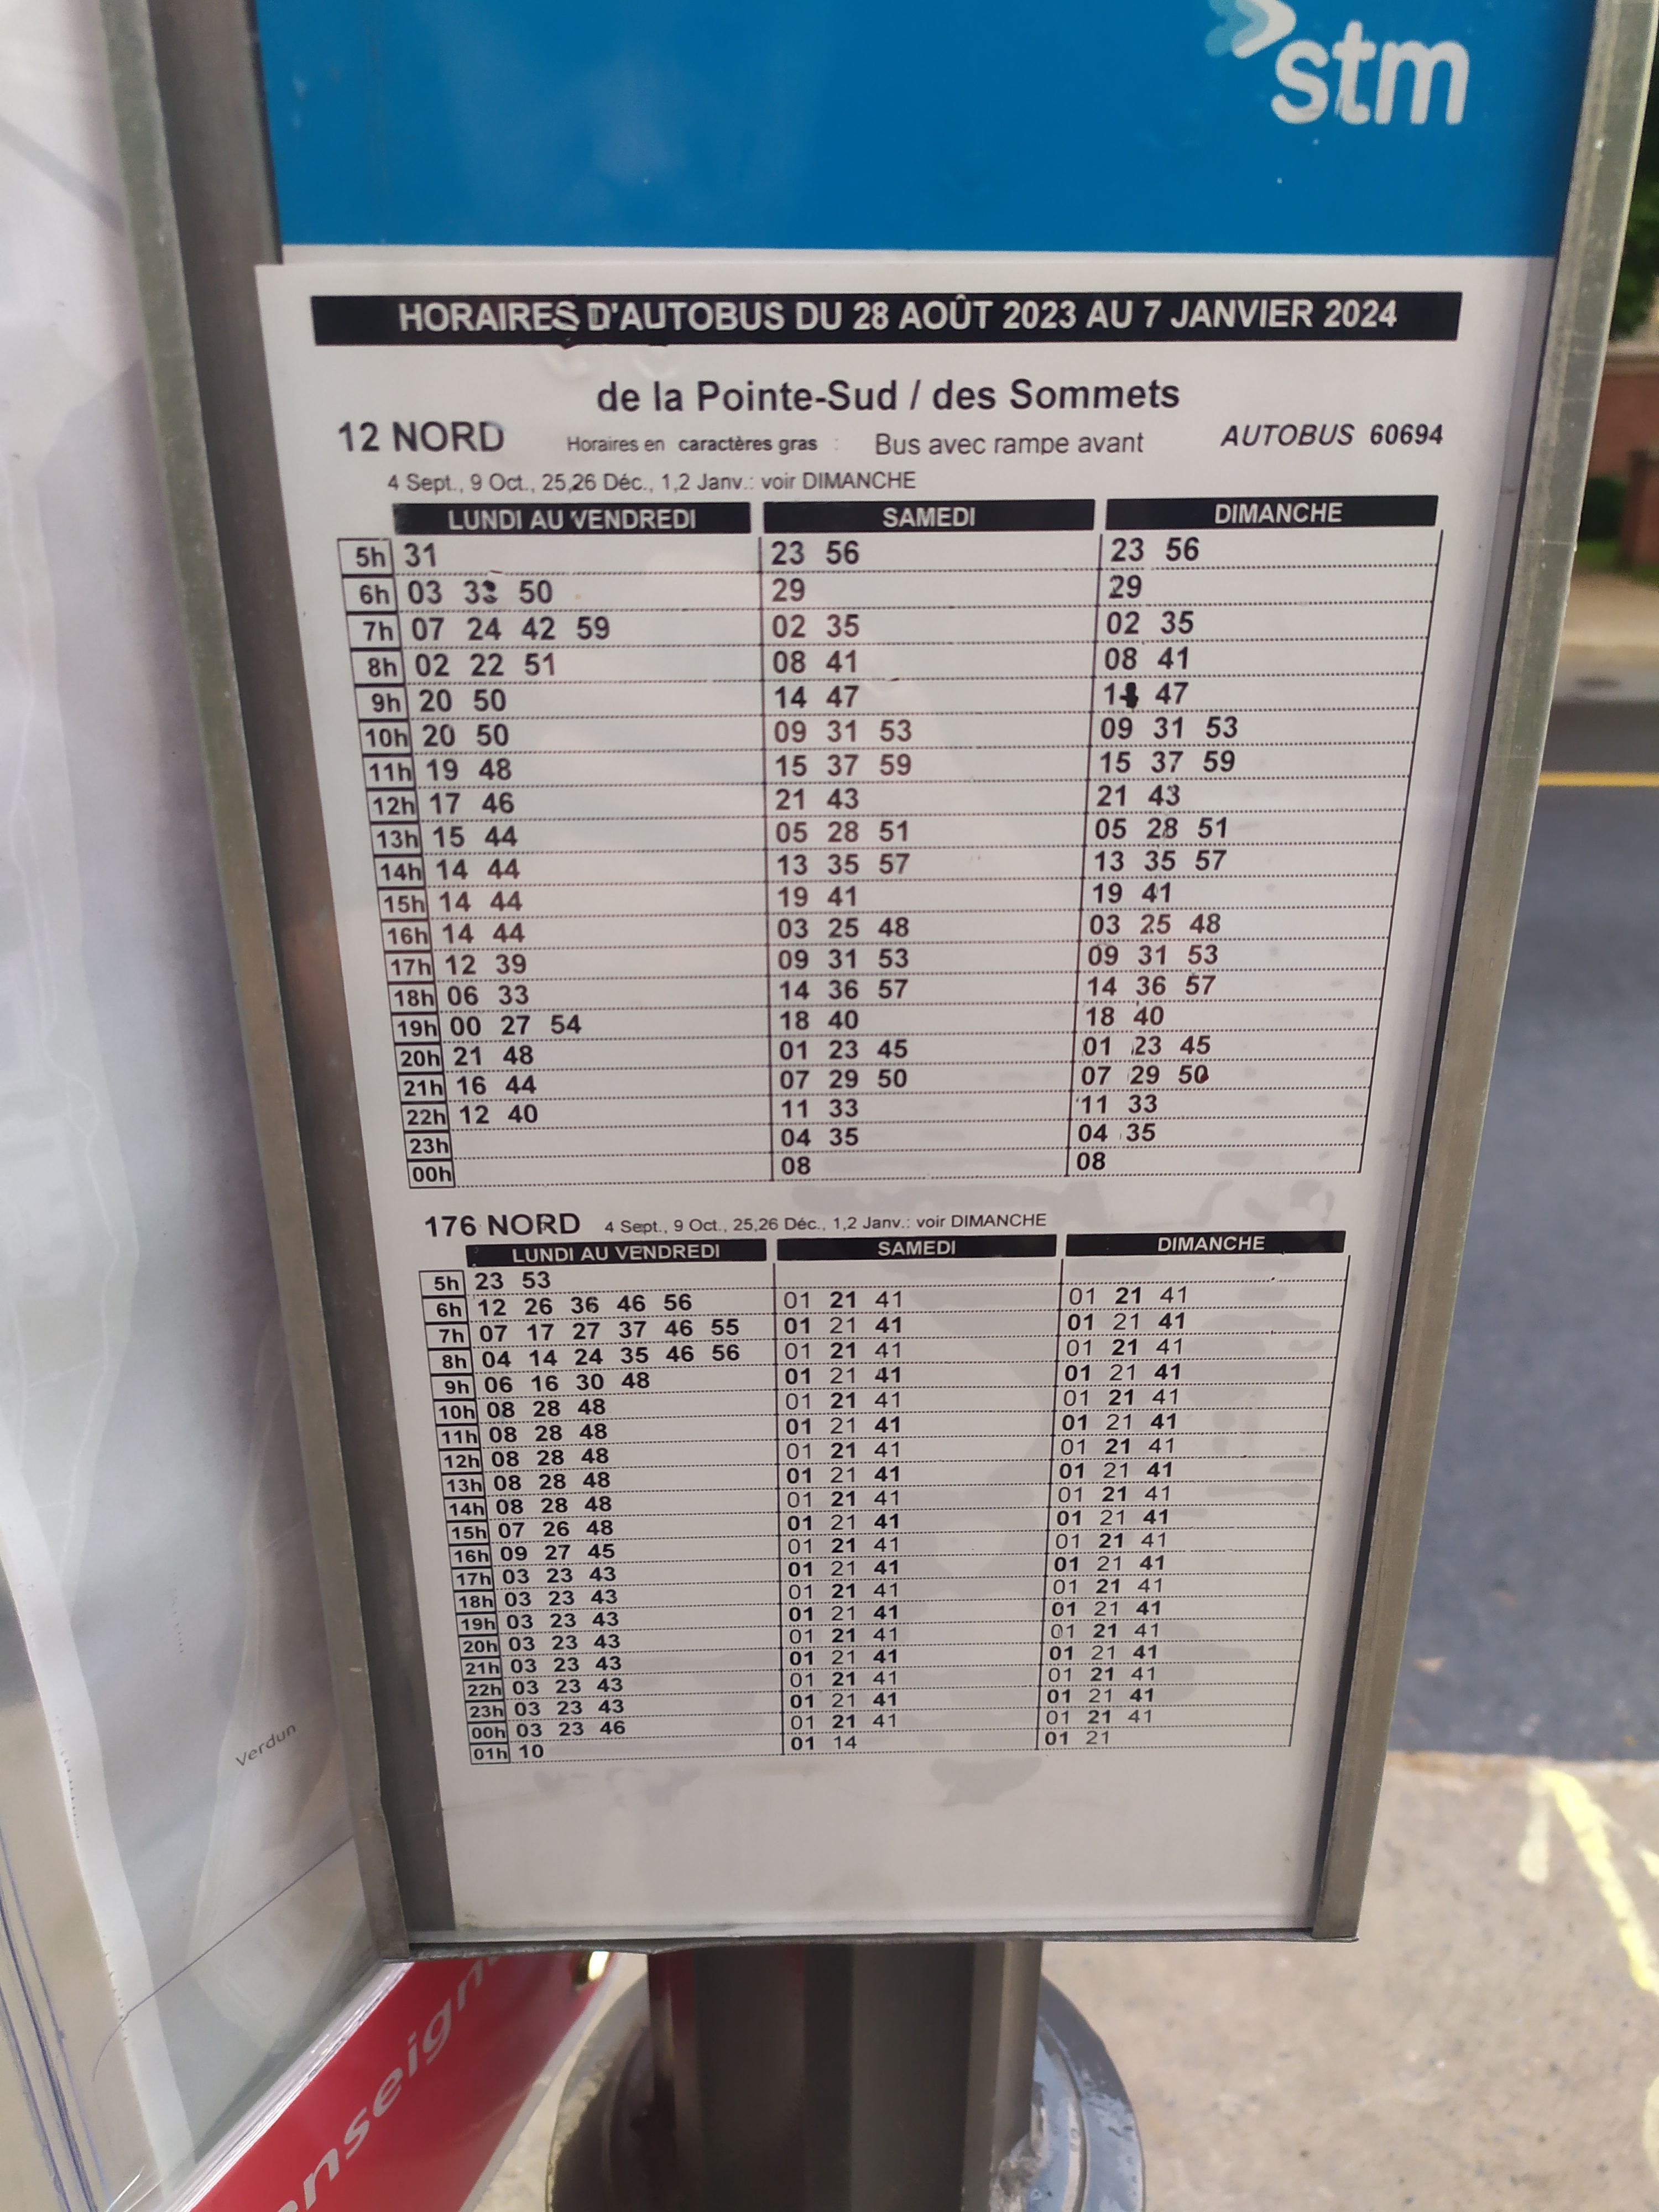 stm
HORAIRES D'AUTOBUS DU 28 AOÛT 2023 AU 7 JANVIER 2024
de la Pointe-Sud / des Sommets
12 NORD Horaires en caractères gras : Bus avec rampe avant AUTOBUS 60694
4 Sept., 9 Oct., 25,26 Déc., 1,2 Janv.: voir DIMANCHE
LUNDI AU VENDREDI SAMEDI DIMANCHE
5h 31 23 56 23 56
6h 03 50 29 29
7h 07 24 42 59 02 35 02 35
8h 02 22 51 08 41 08 41
9h 20 50 14 47 47
10h 20 50 09 31 53 09 31 53
11h 19 48 15 37 59 15 37 59
12h 17 46 21 43 21 43
13h 15 44 05 28 51 05 28 51
14h 14 44 13 35 57 13 35 57
15h 14 44 19 41 19 41
16h 14 44 03 25 48 03 25 48
17h 12 39 09 31 53 09 31 53
18h 06 33 14 36 57 14 36 57
19h 00 27 54 18 40 18 40
20h 21 48 01 23 45 01 23 45
21h 16 44 07 29 50 07 29 50
22h 12 40 11 33 11 33
23h 04 35 04 35
00h 08 08
176 NORD 4 Sept., 9 Oct., 25,26 Déc., 1,2 Janv.: voir DIMANCHE
LUNDI AU VENDREDI SAMEDI DIMANCHE
5h 23 53
6h 12 26 36 46 56 01 21 41 01 21 41
7h 07 17 27 37 46 55 01 21 41 01 21 41
8h 04 14 24 35 46 56 01 21 41 01 21 41
9h 06 16 30 48 01 21 41 01 21 41
10h 08 28 48 01 21 41 01 21 41
11h 08 28 48 01 21 41 01 21 41
12h 08 28 48 01 21 41 01 21 41
13h 08 28 48 01 21 41 01 21 41
14h 08 28 48 01 21 41 01 21 41
15h 07 26 48 01 21 41 01 21 41
16h 09 27 45 01 21 41 01 21 41
17h 03 23 43 01 21 41 01 21 41
18h 03 23 43 01 21 41 01 21 41
19h 03 23 43 01 21 41 01 21 41
20h 03 23 43 01 21 41 01 21 41
21h 03 23 43 01 21 41 01 21 41
22h 03 23 43 01 21 41 01 21 41
23h 03 23 43 01 21 41 01 21 41
00h 03 23 46 01 21 41 01 21 41
01h 10 01 14 01 21
Verdun